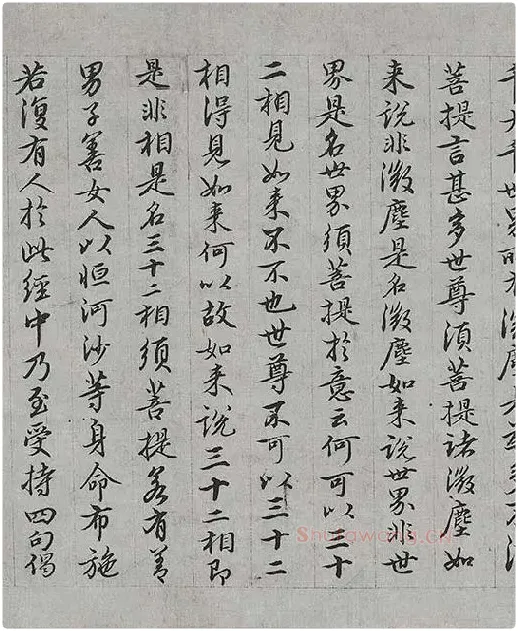 千大千世界所有微塵
菩提言甚多世尊須菩提諸微塵如
来説非微塵是名微塵如来説世界非世
界是名世界須菩提於意云何可以三十
二相見如来不不也世尊不可以三十二
相得見如来何以故如来説三十二相即
是非相是名三十二相須菩提若有善
男子善女人以恒河沙等身命布施
若復有人於此經中乃至受持四句偈